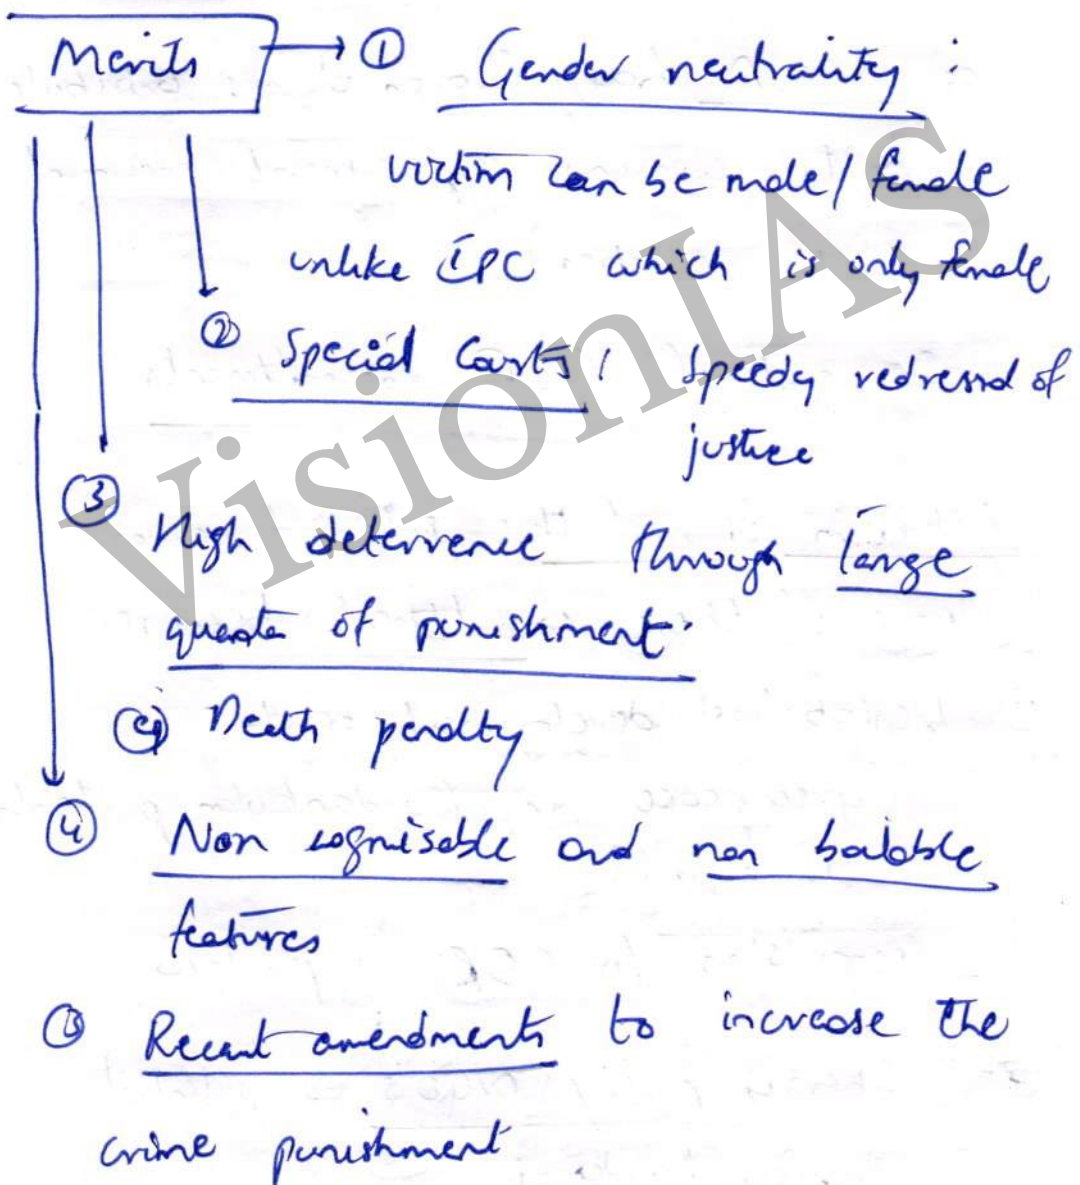 Merits → ① Gender neutrality :
victim can be male / female
unlike IPC which is only female
② Special Courts : Speedy redressal of
justice
③
High deterrence through large
quanta of punishment.
eg Death penalty
④ Non cognisable and non bailable
features
⑤ Recent amendments to increase the
crime punishment
VisionIAS